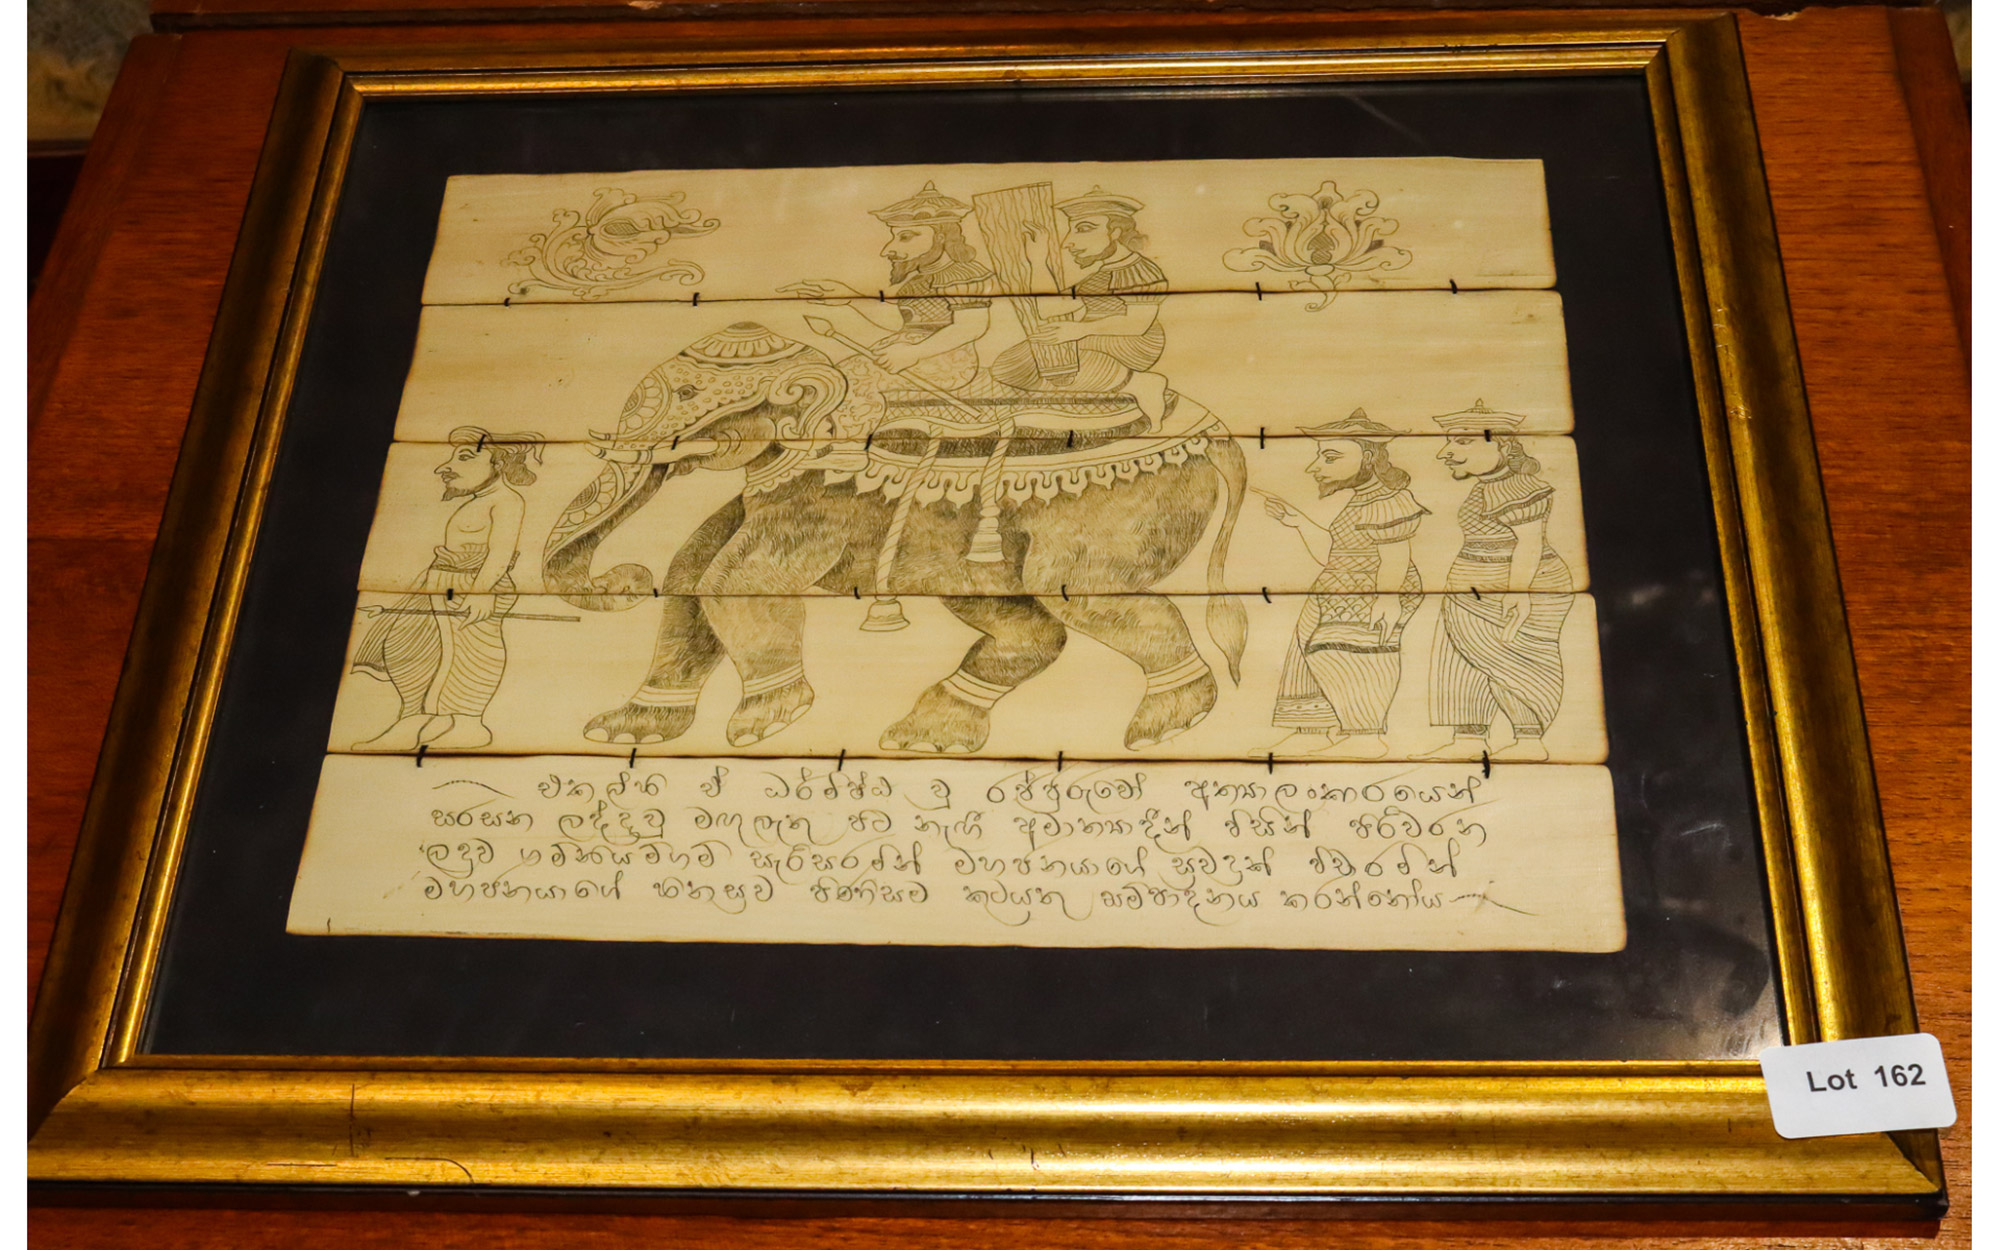 එකල්හි ඒ ධර්මිෂ්ඨ වූ රජ්ජුරුවෝ අත්‍යාලංකාරයෙන්
සරසන ලද්දාවූ මඟුලැතු පිට නැඟී අමාත්‍යාදීන් විසින් පිරිවරන
ලදුව සැරිසරමින් මහජනයාගේ සුවදුක් විචාරමින්
මහජනයාගේ හිතසුව පිණිසම කටයුතු සම්පාදනය කරන්නෝය
Lot 162